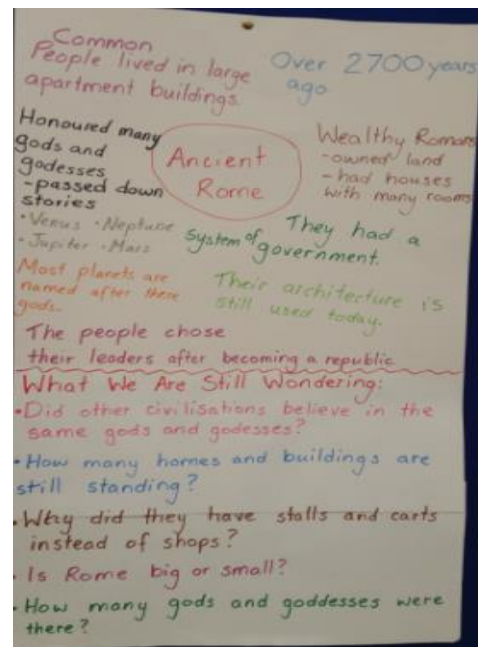 Common
People lived in large
apartment buildings.
Over 2700 years
ago
Honoured many
gods and
godesses
-passed down
stories
• Venus • Neptune
• Jupiter • Mars
Ancient
Rome
Wealthy Romans
-owned land
-had houses
with many rooms
They had a
system of government.
Most planets are
named after these
gods.
Their architecture is
still used today.
The people chose
their leaders after becoming a republic
What We Are Still Wondering:
•Did other civilisations believe in the
same gods and godesses?
•How many homes and buildings are
still standing?
•Why did they have stalls and carts
instead of shops?
•Is Rome big or small?
•How many gods and goddesses were
there?